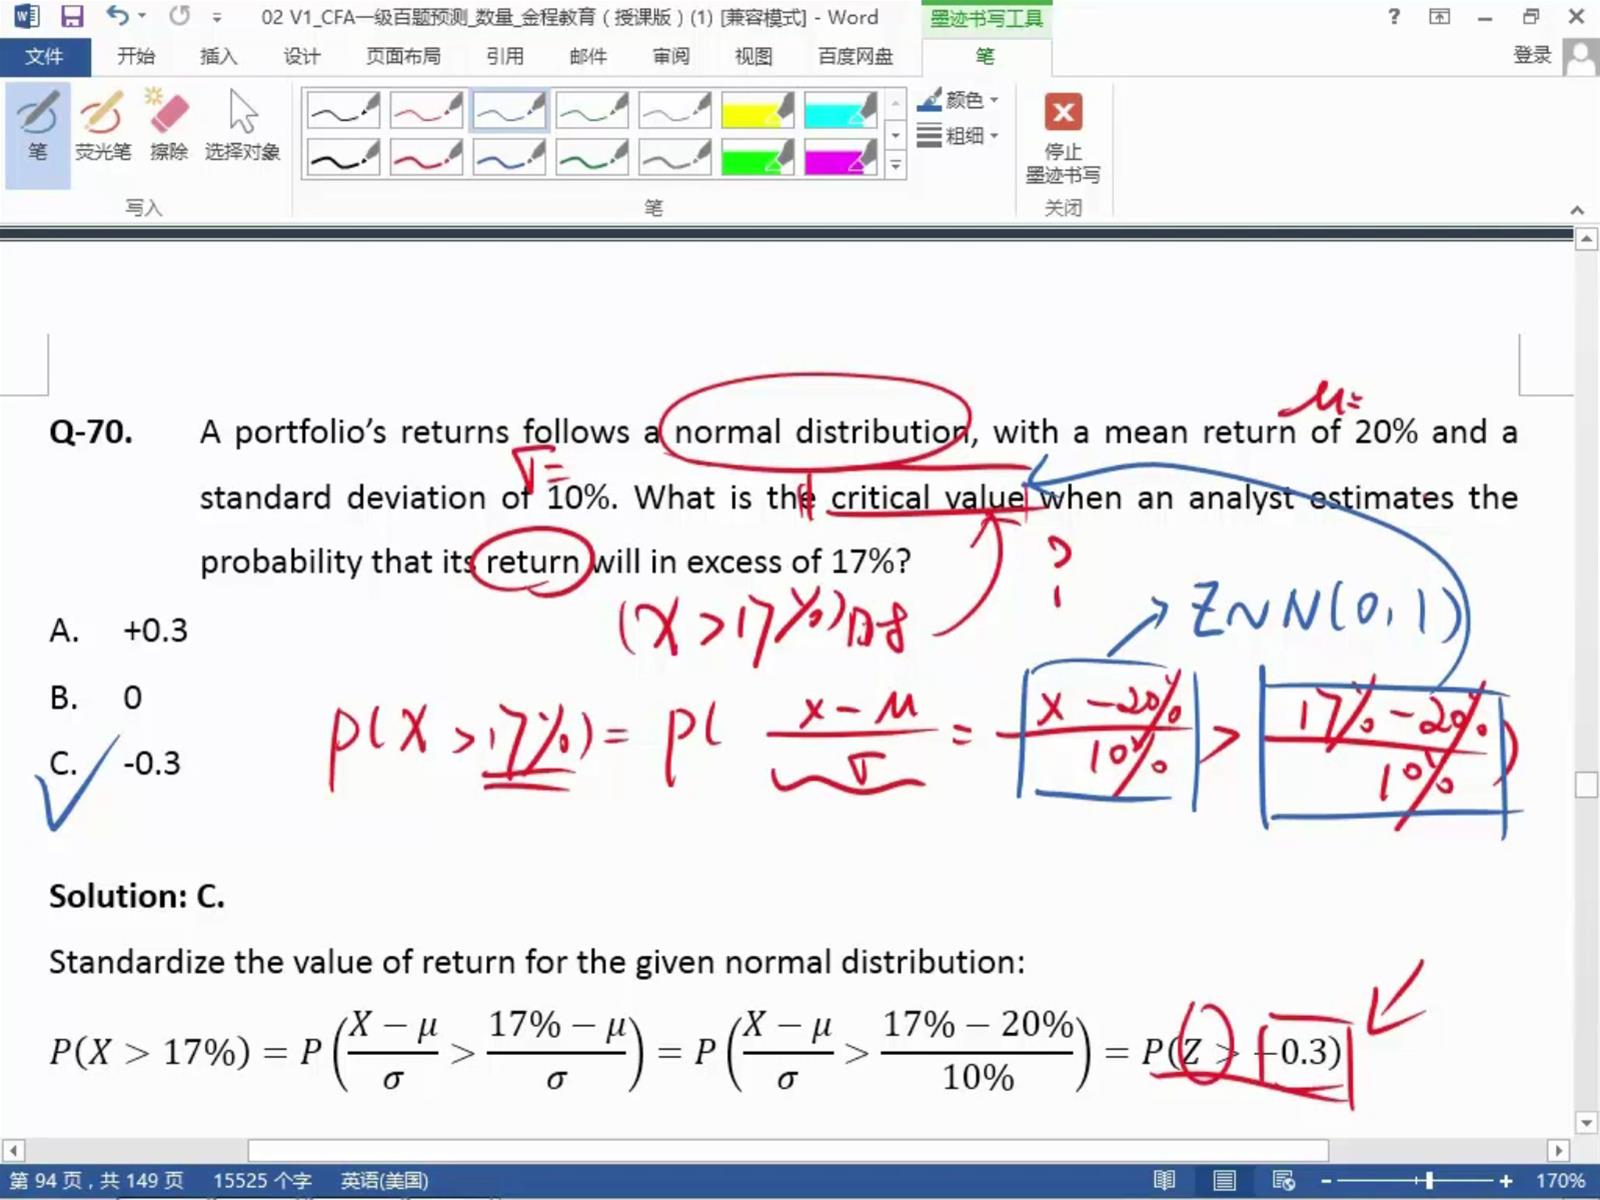 02 V1_CFA一级百题预测_数量_金程教育（授课版）(1) [兼容模式] - Word
墨迹书写工具
文件 开始 插入 设计 页面布局 引用 邮件 审阅 视图 百度网盘 笔 登录
笔 荧光笔 擦除 选择对象 颜色 粗细 停止墨迹书写
写入 笔 关闭
μ=
Q-70. A portfolio’s returns follows a normal distribution, with a mean return of 20% and a
σ=
standard deviation of 10%. What is the critical value when an analyst estimates the
probability that its return will in excess of 17%?
?
(X>17%)
Z~N(0,1)
A. +0.3
B. 0
P(X>17%)= P( X-μ/σ = X-20%/10% > 17%-20%/10% )
C. -0.3
Solution: C.
Standardize the value of return for the given normal distribution:
P(X > 17%) = P((X − μ)/σ > (17% − μ)/σ) = P((X − μ)/σ > (17% − 20%)/10%) = P(Z > −0.3)
第 94 页，共 149 页 15525 个字 英语(美国) 170%